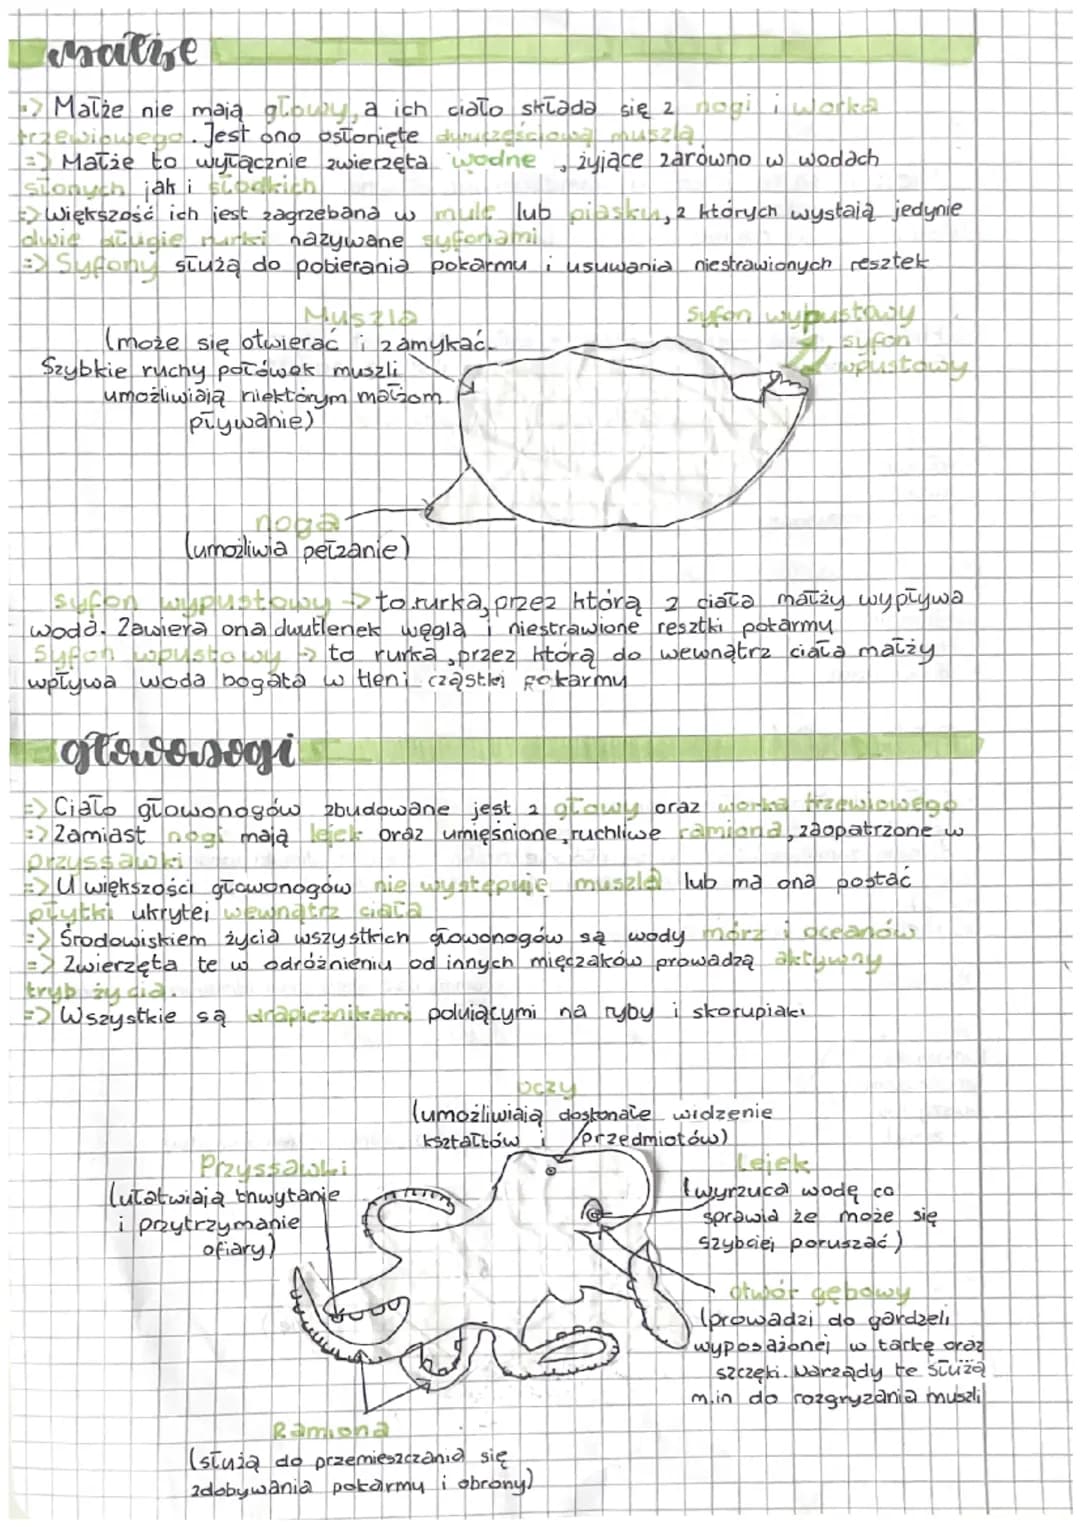 małże
=> Małże nie mają głowy, a ich ciało składa się z nogi i worka
trzewiowego. Jest ono osłonięte dwuczęściową muszlą
=> Małże to wyłącznie zwierzęta wodne, żyjące zarówno w wodach
słonych jak i słodkich
=> Większość ich jest zagrzebana w mule lub piasku, z których wystają jedynie
dwie długie rurki nazywane syfonami
=> Syfony służą do pobierania pokarmu i usuwania niestrawionych resztek
Muszla
(może się otwierać i zamykać.
Szybkie ruchy połówek muszli
umożliwiają niektórym małżom
pływanie)
syfon wypustowy
syfon
wpustowy
noga
(umożliwia pełzanie)
syfon wypustowy -> to rurka, przez którą z ciała małży wypływa
woda. Zawiera ona dwutlenek węgla i niestrawione resztki pokarmu
Syfon wpustowy -> to rurka, przez którą do wewnątrz ciała małży
wpływa woda bogata w tlen i cząstki pokarmu
głowonogi
=> Ciało głowonogów zbudowane jest z głowy oraz worka trzewiowego
=> Zamiast nogi mają lejek oraz umięśnione, ruchliwe ramiona, zaopatrzone w
przyssawki
=> U większości głowonogów nie występuje muszla lub ma ona postać
płytki ukrytej wewnątrz ciała
=> Środowiskiem życia wszystkich głowonogów są wody mórz i oceanów
=> Zwierzęta te w odróżnieniu od innych mięczaków prowadzą aktywny
tryb życia.
=> Wszystkie są drapieżnikami polującymi na ryby i skorupiaki
oczy
(umożliwiają doskonałe widzenie
kształtów i przedmiotów)
Przyssawki
(ułatwiają chwytanie
i przytrzymanie
ofiary)
Lejek
(wyrzuca wodę co
sprawia że może się
szybciej poruszać)
otwór gębowy
(prowadzi do gardzeli
wyposażonej w tarkę oraz
szczęki. Narządy te służą
m.in do rozgryzania muszli
Ramiona
(służą do przemieszczania się
zdobywania pokarmu i obrony)